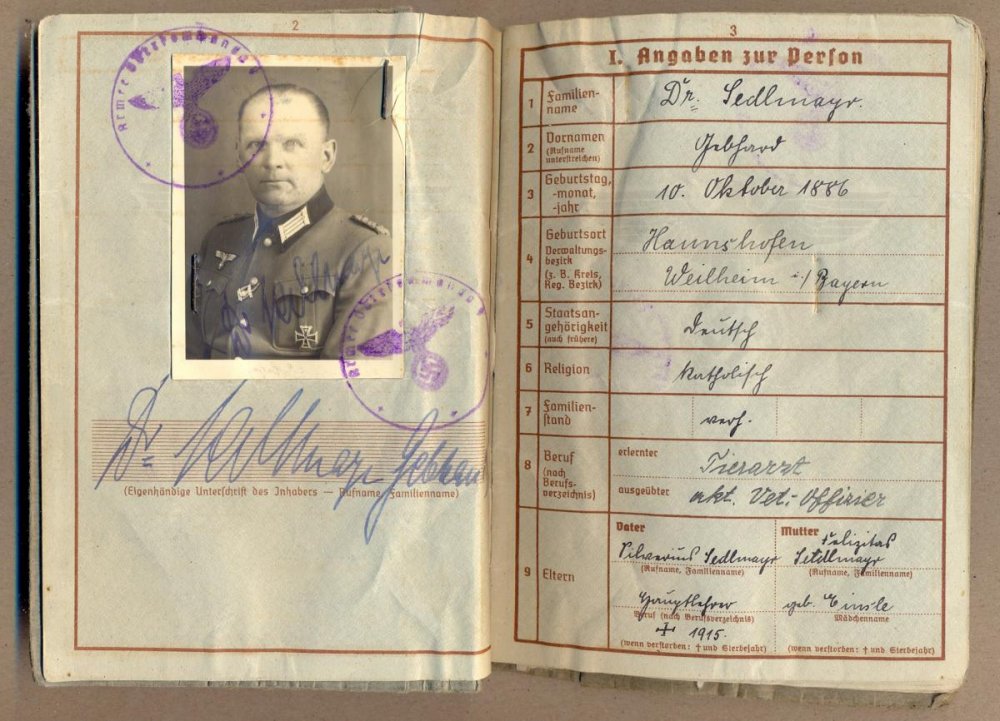 2
Armee Oberkommando
Armee Oberkommando
Dr. Sedlmayr Gebhard
(Eigenhändige Unterschrift des Inhabers — Rufname, Familienname)
3
I. Angaben zur Person
1 Familien-
name
Dr. Sedlmayr.
2 Vornamen
(Rufname
unterstreichen)
Gebhard
3 Geburtstag,
-monat,
-jahr
10. Oktober 1886
4 Geburtsort
Verwaltungs-
bezirk
(z. B. Kreis,
Reg. Bezirk)
Haunshofen
Weilheim i./Bayern
5 Staatsan-
gehörigkeit
(auch frühere)
deutsch
6 Religion
katholisch
7 Familien-
stand
verh.
8 Beruf
(nach
Berufs-
verzeichnis)
erlernter
Tierarzt
ausgeübter
akt. Vet.-Offizier
9 Eltern
Vater
Silverius Sedlmayr
(Rufname, Familienname)
Hauptlehrer
Beruf (nach Berufsverzeichnis)
+ 1915.
(wenn verstorben: † und Sterbejahr)
Mutter
Felizitas
Sedlmayr
(Rufname, Familienname)
geb. Einsle
Mädchenname
(wenn verstorben: † und Sterbejahr)